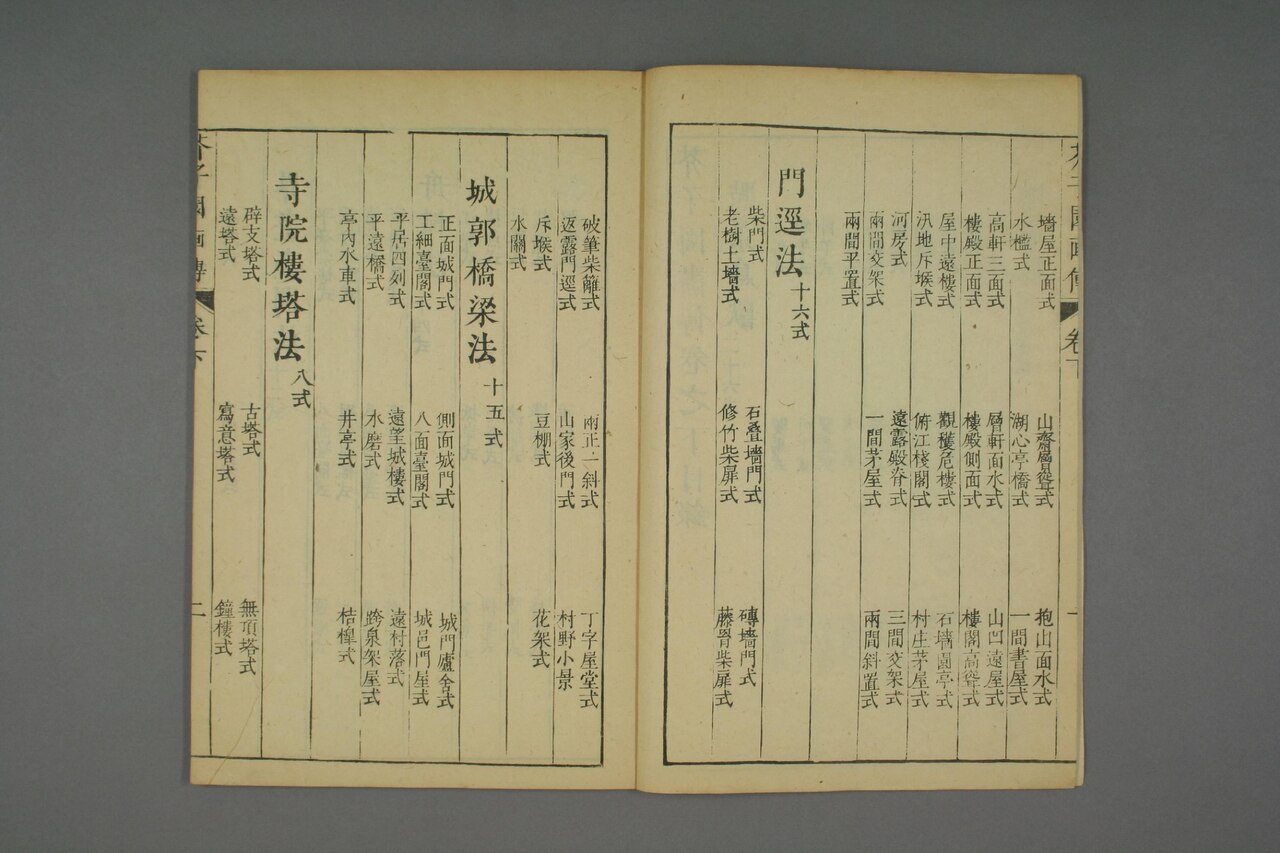 芥子園畫傳 卷下 一
墻屋正面式 山齋層聳式 抱山面水式
水檻式 湖心亭橋式 一間書屋式
高軒三面式 層軒面水式 山凹遠屋式
樓殿正面式 樓殿側面式 樓閣高聳式
屋中遠樓式 觀穫危樓式 石墻圓亭式
汛地斥堠式 俯江棧閣式 村庄茅屋式
河房式 遠露殿脊式 三間交架式
兩間交架式 一間茅屋式 兩間斜置式
兩間平置式
門逕法 十六式
柴門式 石叠墻門式 磚墻門式
老樹土墻式 修竹柴扉式 藤胃柴扉式
破筆柴籬式 兩正一斜式 丁字屋堂式
返露門逕式 山家後門式 村野小景
斥堠式 豆棚式 花架式
水關式
城郭橋梁法 十五式
正面城門式 側面城門式 城門廬舍式
工細臺閣式 八面臺閣式 城邑門屋式
平居四列式 遠望城樓式 遠村落式
平遠橋式 水磨式 跨泉架屋式
亭內水車式 井亭式 桔槔式
寺院樓塔法 八式
辟支塔式 古塔式 無頂塔式
遠塔式 寫意塔式 鐘樓式
芥子園畫傳 卷下 二